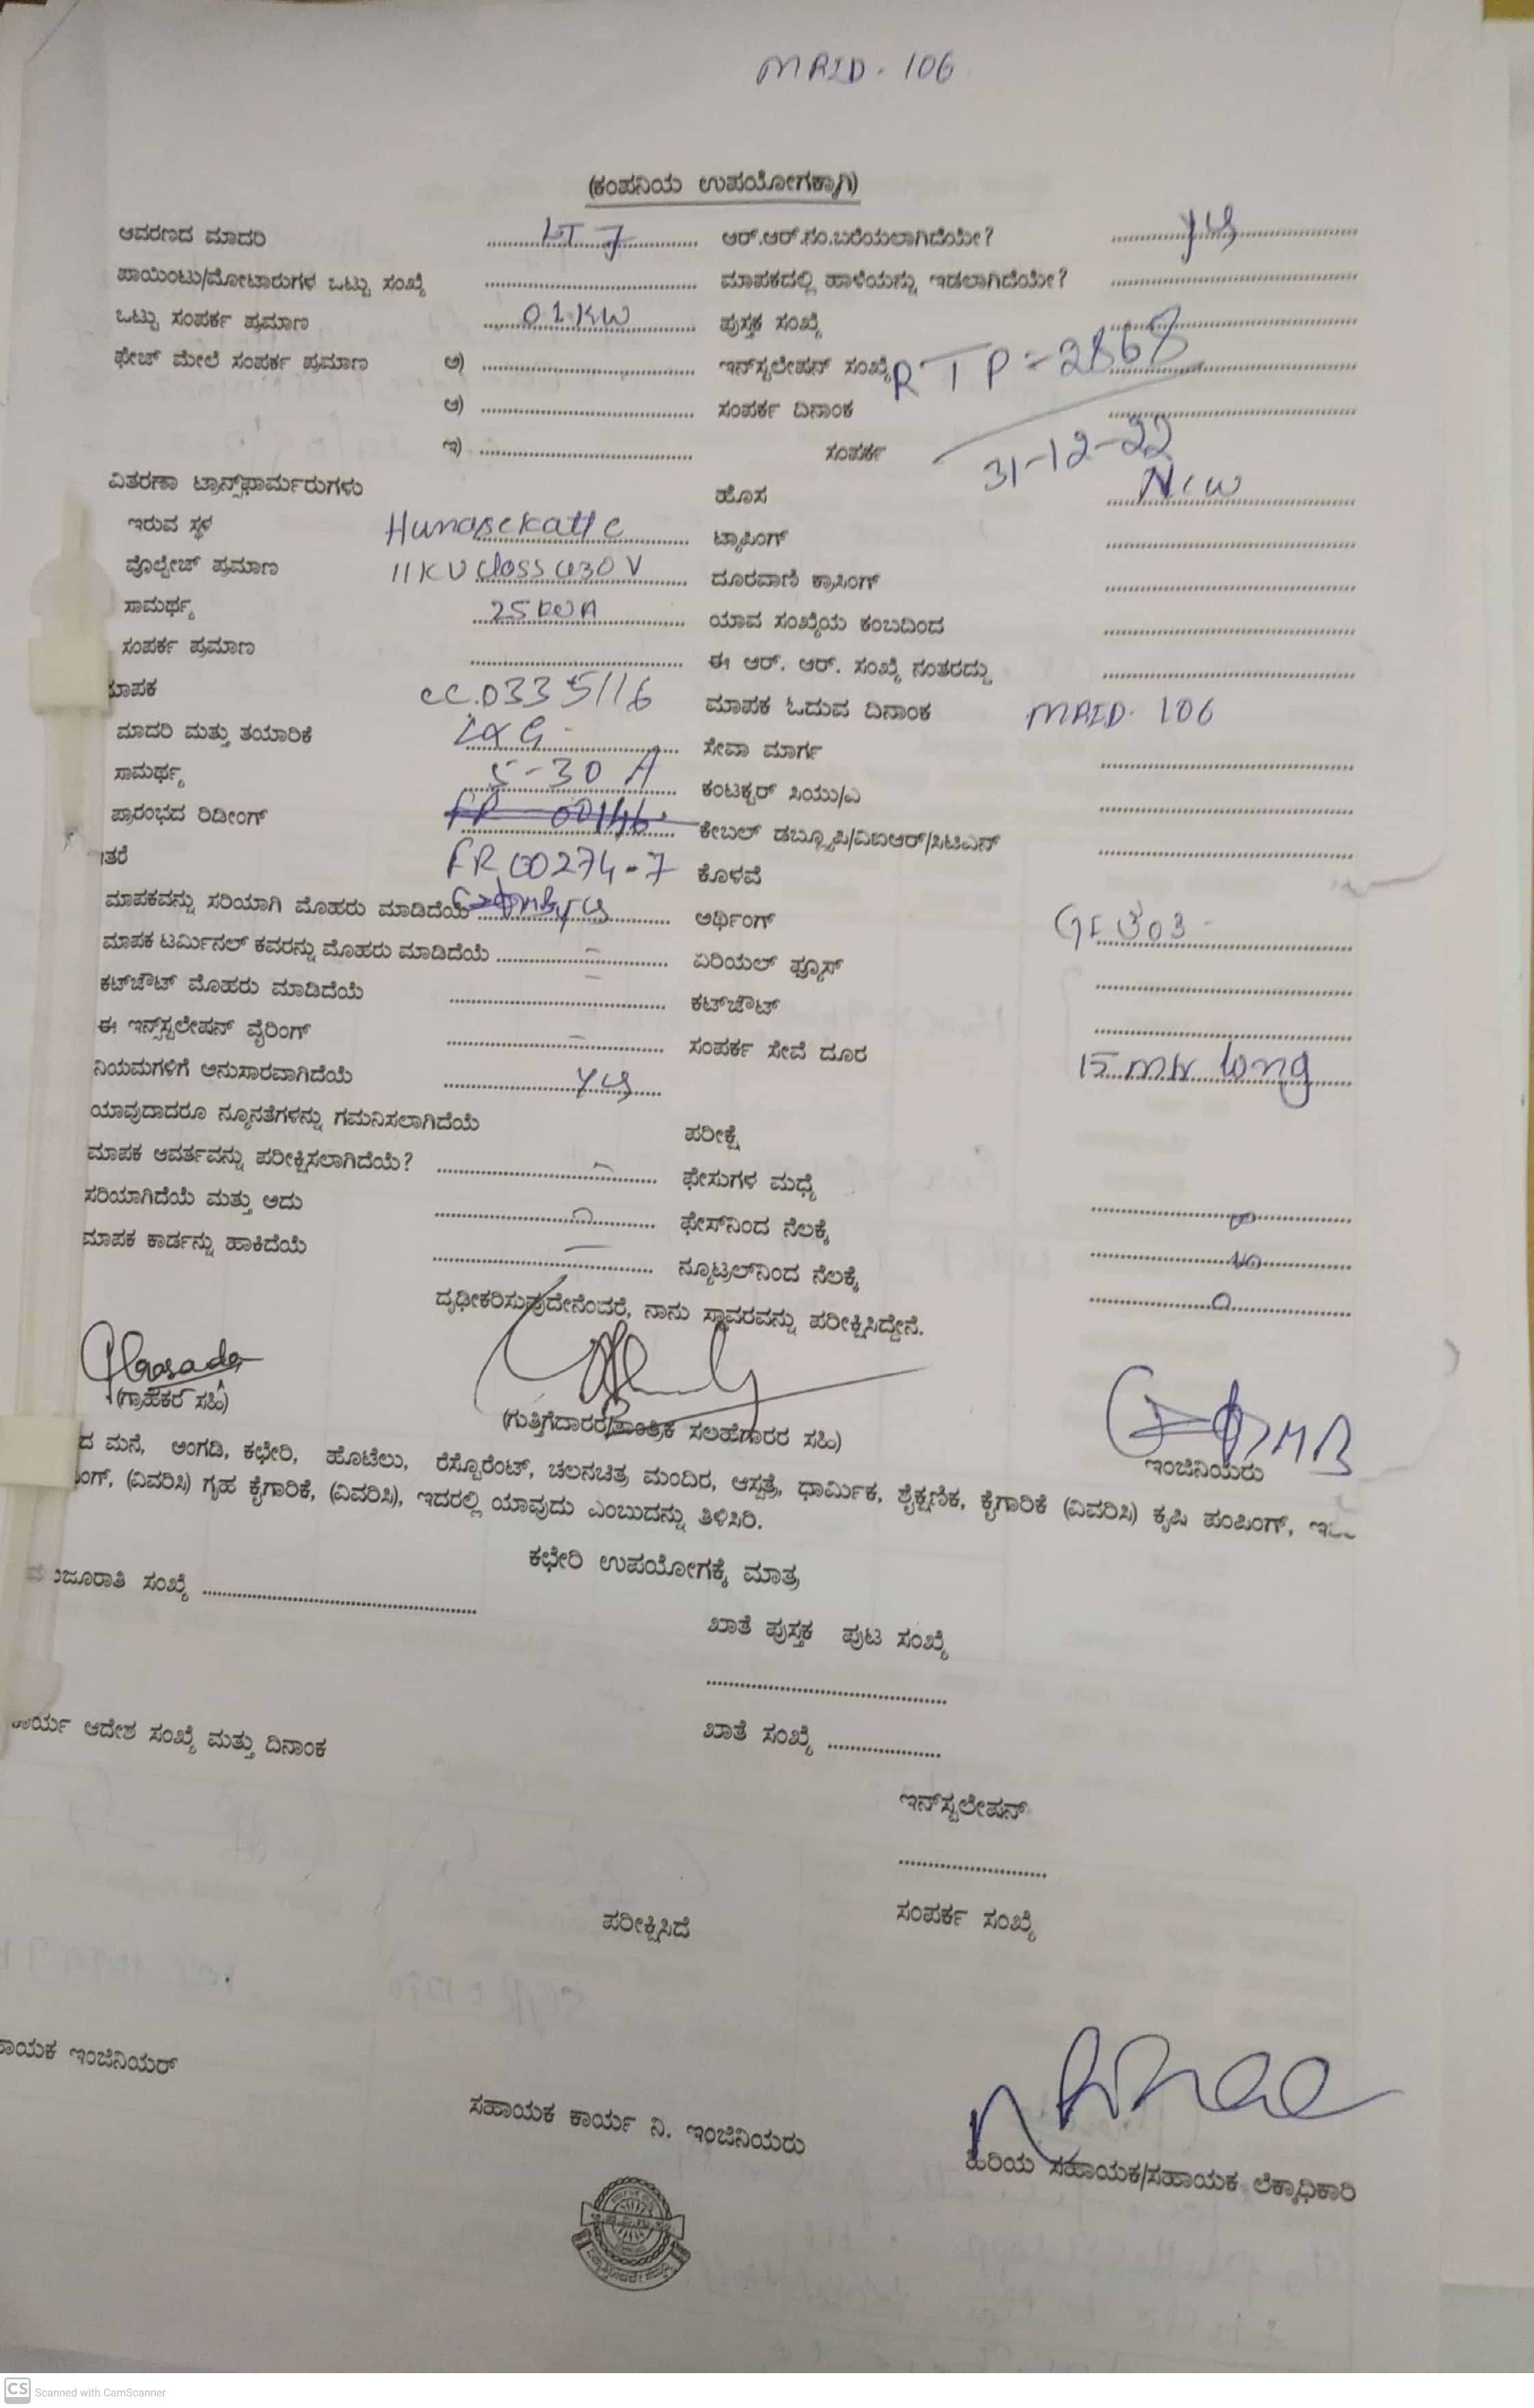 MRID. 106
(ಕಂಪನಿಯ ಉಪಯೋಗಕ್ಕಾಗಿ)
ಆವರಣದ ಮಾದರಿ LT 7 ಆರ್.ಆರ್.ನಂ.ಬರೆಯಲಾಗಿದೆಯೇ? yes
ಪಾಯಿಂಟು/ಮೋಟಾರುಗಳ ಒಟ್ಟು ಸಂಖ್ಯೆ ಮಾಪಕದಲ್ಲಿ ಹಾಳೆಯನ್ನು ಇಡಲಾಗಿದೆಯೇ?
ಒಟ್ಟು ಸಂಪರ್ಕ ಪ್ರಮಾಣ 01 KW ಪುಸ್ತಕ ಸಂಖ್ಯೆ
ಫೇಜ್ ಮೇಲೆ ಸಂಪರ್ಕ ಪ್ರಮಾಣ ಅ) ಇನ್‌ಸ್ಟಲೇಷನ್ ಸಂಖ್ಯೆ RTP=2868
ಆ) ಸಂಪರ್ಕ ದಿನಾಂಕ
ಇ) ಸಂಪರ್ಕ 31-12-22
ವಿತರಣಾ ಟ್ರಾನ್ಸ್‌ಫಾರ್ಮರುಗಳು ಹೊಸ New
ಇರುವ ಸ್ಥಳ Hunasekatte ಟ್ಯಾಪಿಂಗ್
ವೊಲ್ಟೇಜ್ ಪ್ರಮಾಣ 11KV class 430 V ದೂರವಾಣಿ ಕ್ರಾಸಿಂಗ್
ಸಾಮರ್ಥ್ಯ 25 KVA ಯಾವ ಸಂಖ್ಯೆಯ ಕಂಬದಿಂದ
ಸಂಪರ್ಕ ಪ್ರಮಾಣ ಈ ಆರ್. ಆರ್. ಸಂಖ್ಯೆ ನಂತರದ್ದು
ಮಾಪಕ CC.0335116 ಮಾಪಕ ಓದುವ ದಿನಾಂಕ MRID. 106
ಮಾದರಿ ಮತ್ತು ತಯಾರಿಕೆ L&G ಸೇವಾ ಮಾರ್ಗ
ಸಾಮರ್ಥ್ಯ 5-30 A ಕಂಟಕ್ಟರ್ ಸಿಯು/ಎ
ಪ್ರಾರಂಭದ ರಿಡೀಂಗ್ ಕೇಬಲ್ ಡಬ್ಲ್ಯೂಪಿ/ವಿಐಆರ್/ಸಿಟಿಎನ್
ಇತರೆ FR 00274-7 ಕೊಳವೆ
ಮಾಪಕವನ್ನು ಸರಿಯಾಗಿ ಮೊಹರು ಮಾಡಿದೆಯೆ yes ಅರ್ಥಿಂಗ್
ಮಾಪಕ ಟರ್ಮಿನಲ್ ಕವರನ್ನು ಮೊಹರು ಮಾಡಿದೆಯೆ ಏರಿಯಲ್ ಫ್ಯೂಸ್
ಕಟ್‌ಔಟ್ ಮೊಹರು ಮಾಡಿದೆಯೆ ಕಟ್‌ಔಟ್
ಈ ಇನ್ಸ್‌ಸ್ಟಲೇಷನ್ ವೈರಿಂಗ್ ಸಂಪರ್ಕ ಸೇವೆ ದೂರ 15 mtr long
ನಿಯಮಗಳಿಗೆ ಅನುಸಾರವಾಗಿದೆಯೆ yes
ಯಾವುದಾದರೂ ನ್ಯೂನತೆಗಳನ್ನು ಗಮನಿಸಲಾಗಿದೆಯೆ ಪರೀಕ್ಷೆ
ಮಾಪಕ ಆವರ್ತವನ್ನು ಪರೀಕ್ಷಿಸಲಾಗಿದೆಯೆ? ಫೇಸುಗಳ ಮಧ್ಯೆ
ಸರಿಯಾಗಿದೆಯೆ ಮತ್ತು ಅದು ಫೇಸ್‌ನಿಂದ ನೆಲಕ್ಕೆ
ಮಾಪಕ ಕಾರ್ಡನ್ನು ಹಾಕಿದೆಯೆ ನ್ಯೂಟ್ರಲ್‌ನಿಂದ ನೆಲಕ್ಕೆ
ದೃಢೀಕರಿಸುವುದೇನೆಂದರೆ, ನಾನು ಸ್ಥಾವರವನ್ನು ಪರೀಕ್ಷಿಸಿದ್ದೇನೆ.
(ಗ್ರಾಹಕರ ಸಹಿ) (ಗುತ್ತಿಗೆದಾರರ/ತಾಂತ್ರಿಕ ಸಲಹೆಗಾರರ ಸಹಿ) ಇಂಜಿನಿಯರು
ದ ಮನೆ, ಅಂಗಡಿ, ಕಛೇರಿ, ಹೊಟೆಲು, ರೆಸ್ಟೊರೆಂಟ್, ಚಲನಚಿತ್ರ ಮಂದಿರ, ಆಸ್ಪತ್ರೆ, ಧಾರ್ಮಿಕ, ಶೈಕ್ಷಣಿಕ, ಕೈಗಾರಿಕೆ (ವಿವರಿಸಿ) ಕೃಷಿ ಪಂಪಿಂಗ್,
ಂಗ್, (ವಿವರಿಸಿ) ಗೃಹ ಕೈಗಾರಿಕೆ, (ವಿವರಿಸಿ), ಇದರಲ್ಲಿ ಯಾವುದು ಎಂಬುದನ್ನು ತಿಳಿಸಿರಿ.
ಕಛೇರಿ ಉಪಯೋಗಕ್ಕೆ ಮಾತ್ರ
ಮಂಜೂರಾತಿ ಸಂಖ್ಯೆ
ಖಾತೆ ಪುಸ್ತಕ ಪುಟ ಸಂಖ್ಯೆ
ಕಾರ್ಯ ಆದೇಶ ಸಂಖ್ಯೆ ಮತ್ತು ದಿನಾಂಕ ಖಾತೆ ಸಂಖ್ಯೆ
ಇನ್‌ಸ್ಟಲೇಷನ್
ಪರೀಕ್ಷಿಸಿದೆ ಸಂಪರ್ಕ ಸಂಖ್ಯೆ
ಸಹಾಯಕ ಇಂಜಿನಿಯರ್
ಸಹಾಯಕ ಕಾರ್ಯ ನಿ. ಇಂಜಿನಿಯರು
ಹಿರಿಯ ಸಹಾಯಕ/ಸಹಾಯಕ ಲೆಕ್ಕಾಧಿಕಾರಿ
CS Scanned with CamScanner